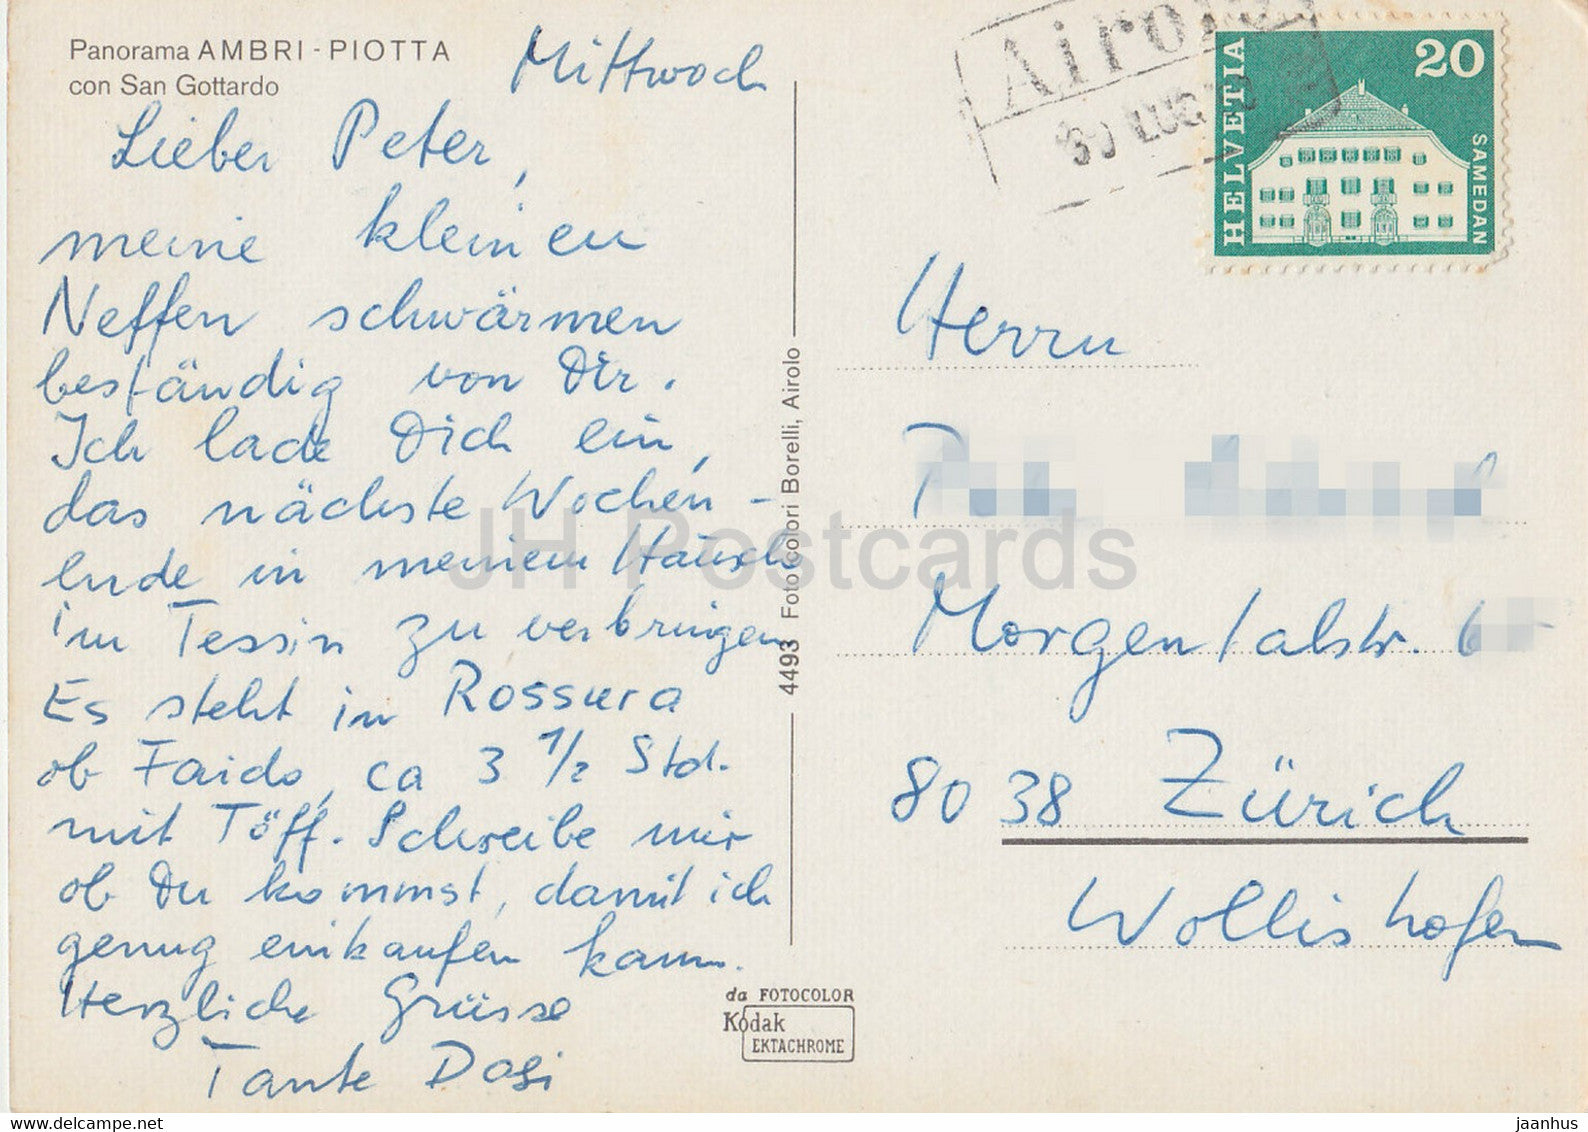 Panorama AMBRI-PIOTTA
con San Gottardo
Mittwoch
Lieber Peter,
meine kleinen
Neffen schwärmen
beständig von Dir.
Ich lade Dich ein,
das nächste Wochen-
ende in meinem Häusle
im Tessin zu verbringen
Es steht in Rossura
ob Faido, ca 3 1/2 Std.
mit Töff. Schreibe mir
ob Du kommst, damit ich
genug einkaufen kann.
Herzliche Grüsse
Tante Dosi
4493 Fotocolori Borelli, Airolo
da FOTOCOLOR
Kodak
EKTACHROME
Airolo
30 LUG
HELVETIA
20
SAMEDAN
Herrn
Morgentalstr. 6
8038 Zürich
Wollishofen
JH Postcards
www.delcampe.net
jaanhus